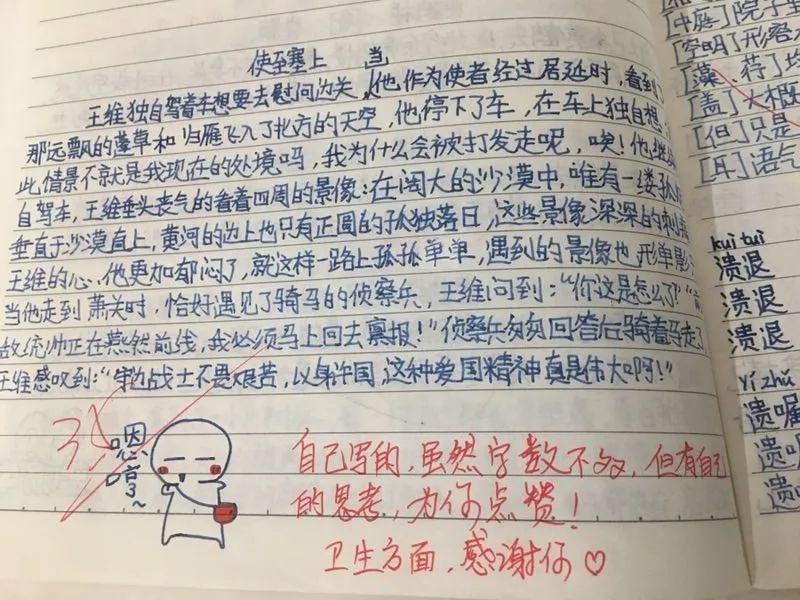 使至塞上
当
王维独自驾着车想要去慰问边关,他作为使者经过居延时,看到了
那远飘的蓬草和归雁飞入了北方的天空,他停下了车,在车上独自想:
此情景不就是我现在的处境吗,我为什么会被打发走呢,唉!他继续
自驾车,王维垂头丧气的看着四周的景像:在阔大的沙漠中,唯有一缕孤
垂直于沙漠直上,黄河的边上也只有正圆的孤独落日,这些景像深深的刺
王维的心,他更加郁闷了,就这样一路上孤孤单单,遇到的景像也形单影
当他走到萧关时,恰好遇见了骑马的侦察兵,王维问到:“你这是怎么了?”
敌统帅正在燕然前线,我必须马上回去禀报!”侦察兵匆匆回答后骑着马走了
王维感叹到:“守边战士不畏艰苦,以身许国,这种爱国精神真是伟大啊!”
35
嗯哼~
自己写的,虽然字数不多,但有自己
的思考,为你点赞!
卫生方面,感谢你♡
[中庭]院子里
[空明]形容水
[藻、荇]均
[盖]大概
[但]只是
[耳]语气
kuì tuì
溃退
溃退
溃退
yí zhǔ
遗嘱
遗嘱
遗